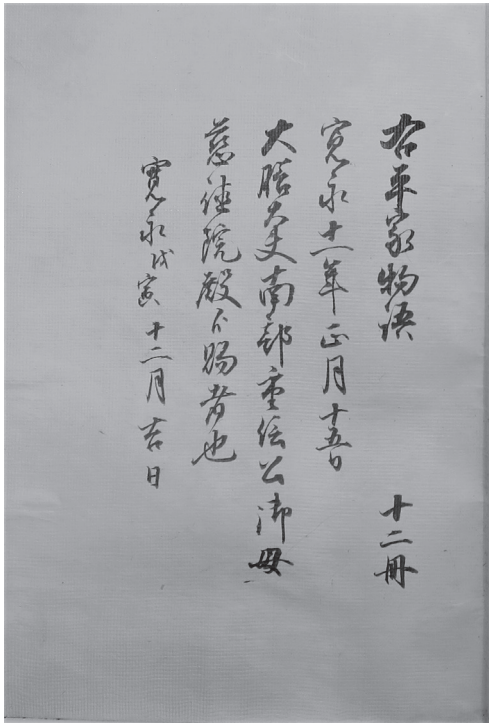 右平家物語 十二冊
寛永十一年正月十五日
大膳大夫南部重信公御母
慈徳院殿ゟ賜者也
寛永戊寅十二月吉日